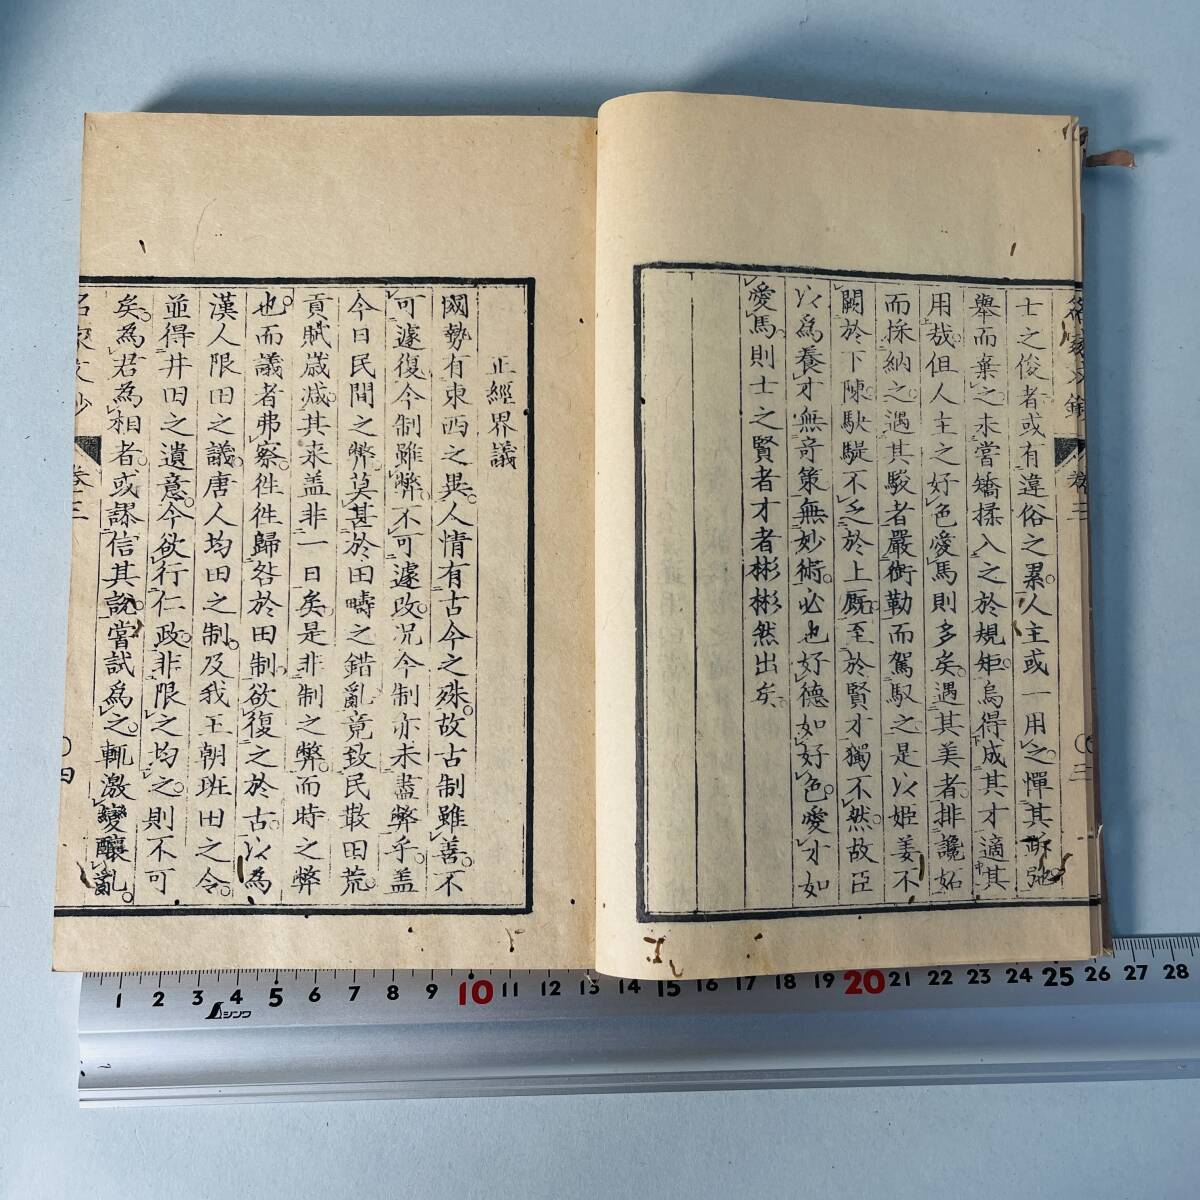 士之俊者或有違俗之累人主或一用之憚其跅弛
擧而棄之未嘗矯揉入之於規矩烏得成其才適其
用哉但人主之好色愛馬則多矣遇其美者排讒妬
而採納之遇其駿者嚴銜勒而駕馭之是以姬姜不
闕於下陳駃騠不乏於上厩至於賢才獨不然故臣
以爲養才無奇策無妙術必也好德如好色愛才如
愛馬則士之賢者才者彬彬然出矣
卷三
三
正經界議
國勢有東西之異人情有古今之殊故古制雖善不
可遽復今制雖弊不可遽改况今制亦未盡弊乎蓋
今日民間之弊莫甚於田疇之錯亂竟致民散田荒
貢賦歲减其来蓋非一日矣是非制之弊而時之弊
也而議者弗察徃徃歸咎於田制欲復之於古以為
漢人限田之議唐人均田之制及我王朝班田之令
並得井田之遺意今欲行仁政非限之均之則不可
矣為君為相者或謬信其説嘗試爲之輒激變釀亂
名家文抄 卷三
四
1 2 3 4 5 6 7 8 9 10 11 12 13 14 15 16 17 18 19 20 21 22 23 24 25 26 27 28
シンワ